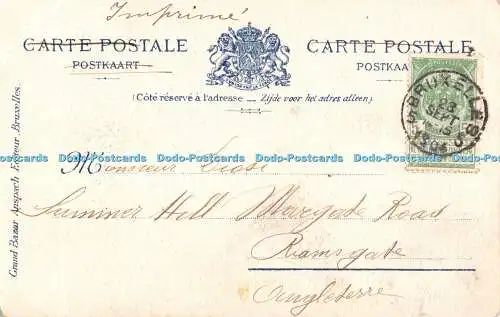 Imprimé
CARTE POSTALE
POSTKAART
CARTE POSTALE
POSTKAA
(Côté réservé à l'adresse — Zijde voor het adres alleen).
BRUXELLES
23
SEPT
Dodo-Postcards Dodo-Postcards Dodo-Postcards Dodo-Postcards
Monsieur
Summer Hill Margate Road
Ramsgate
Angleterre
Grand Bazar Anspach, Editeur, Bruxelles.